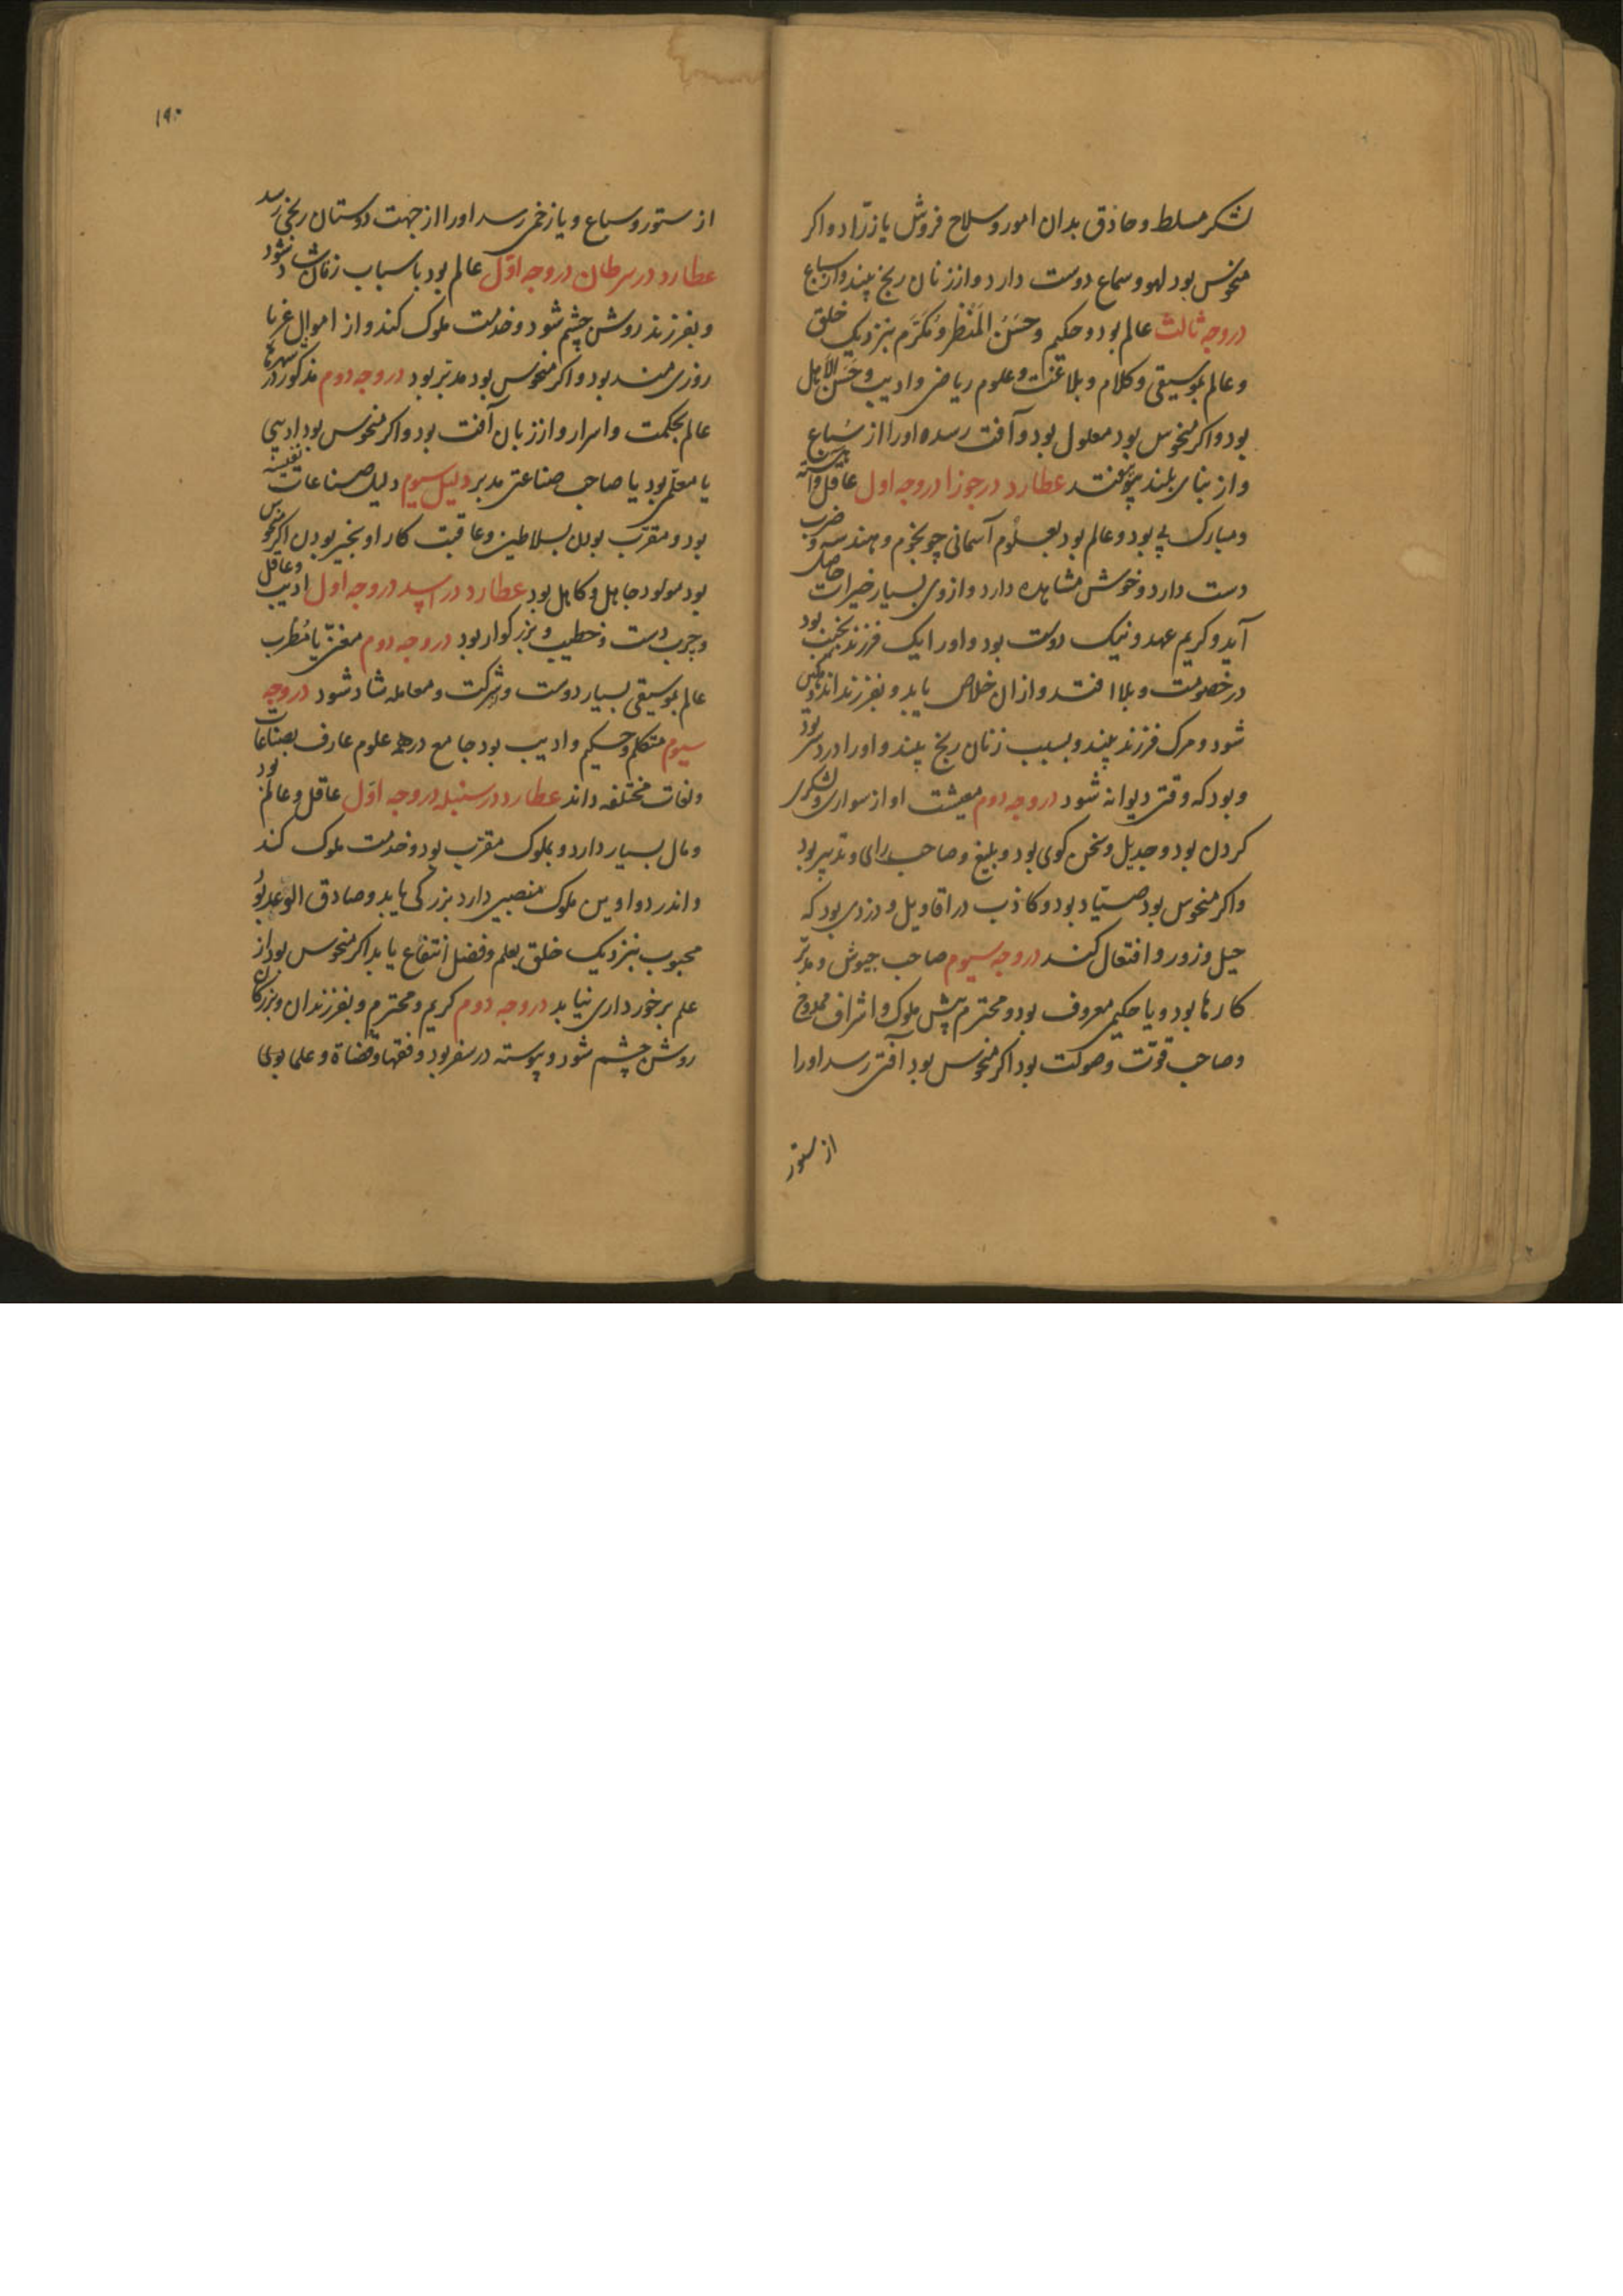 لشکر مسلط و حاذق بدان امور و سلاح فروش یا زرّاد و اکر
منحوس بود لهو و سماع دوست دارد و از زنان رنج بیند و از سباع
در وجه ثالث عالم بود و حکیم و حَسَن المَنظر و مُکَرّم بنزدیک خلق
و عالم بموسیقی و کلام و بلاغت و علوم ریاضی و ادیب و حَسَن
بود و اکر منحوس بود معلول بود و آفت رسد اورا از سُباع
و از بنای بلند بیوفتد عطارد در جوزا در وجه اول عاقل و آهسته
و مبارک پی بود و عالم بود بعلوم آسمانی چو نجوم و هندسه و ضرب
دست دارد و خوش مشاهده دارد و از وی بسیار خیرات حاصل
آید و کریم عهد و نیک دوست بود و اورا یک فرزند نجیب بود
در خصومت و بلا افتد و از ان خلاص یابد و بفرزند اندوهکین
شود و مرک فرزند بیند و بسبب زنان رنج بیند و اورا درد سر بود
و بود که وقتی دیوانه شود در وجه دوم معیشت او از سواری و لشکری
کردن بود و جدیل و سخن کوی بود و بلیغ و صاحب رای و تدبیر بود
و اکر منحوس بود صیّاد بود و کاذب در اقاویل و دزدی بود که
حیل و زور و افتعال کند در وجه سیوم صاحب جیوش و مدبّر
کارها بود و یا حکیمی معروف بود و محترم پیش ملوک و اشراف ممدوح
و صاحب قوّت و صولت بود اکر منحوس بود آفتی رسد اورا
از ستور
۱۹۰
از ستور و سباع و یا زخمی رسد اورا از جهت دوستان رنجی رسد
عطارد در سرطان در وجه اوّل عالم بود با سباب زنان شاد شود
و بفرزند روشن چشم شود و خدمت ملوک کند و از اموال غربا
روزی مند بود و اکر منحوس بود مدبّر بود در وجه دوم مذکور در شهرها
عالم بحکمت و اسرار و از زبان آفت بود و اکر منحوس بود ادیبی
یا معلّمی بود یا صاحب صناعتی مدبر دلیل سیوم دلیل صناعات نفیسه
بود و مقرّب بودن بسلاطین و عاقبت کار او بخیر بودن اکر منحوس
بود مولود جاهل و کاهل بود عطارد در اسد در وجه اول ادیب و عاقل
و چرب دست و خطیب و بزرکوار بود در وجه دوم مغنّی یا مُطرب
عالم بموسیقی بسیار دوست و شرکت و معامله شاد شود در وجه
سیوم متکلم و حکیم و ادیب بود جامع در همه علوم عارف بصناعات
و لغات مختلفه داند عطارد در سنبله در وجه اوّل عاقل و عالم بود
و مال بسیار دارد و بملوک مقرّب بود و خدمت ملوک کند
و اندر دواوین ملوک منصبی دارد بزرکی یابد و صادق الوعد بود
محبوب بنزدیک خلق بعلم و فضل انتفاع یابد اکر منحوس بود از
علم برخورداری نیابد در وجه دوم کریم و محترم و بفرزندان و بزرکان
روشن چشم شود و پیوسته در سفر بود و فقها و قضاة و علما بوی